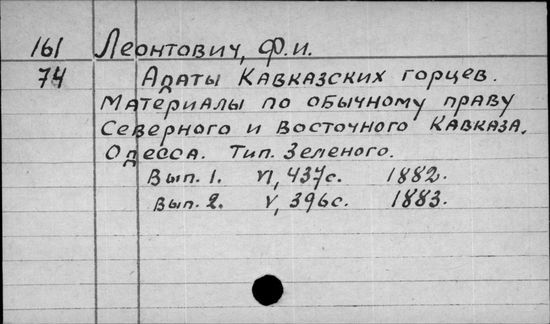 161 Леонтович, Ф.И.
74 Адаты Кавказских горцев.
Материалы по обычному праву
Северного и Восточного Кавказа.
Одесса. Тип. Зеленого.
Вып. 1. VI, 437с. 1882.
Вып. 2. V, 396с. 1883.